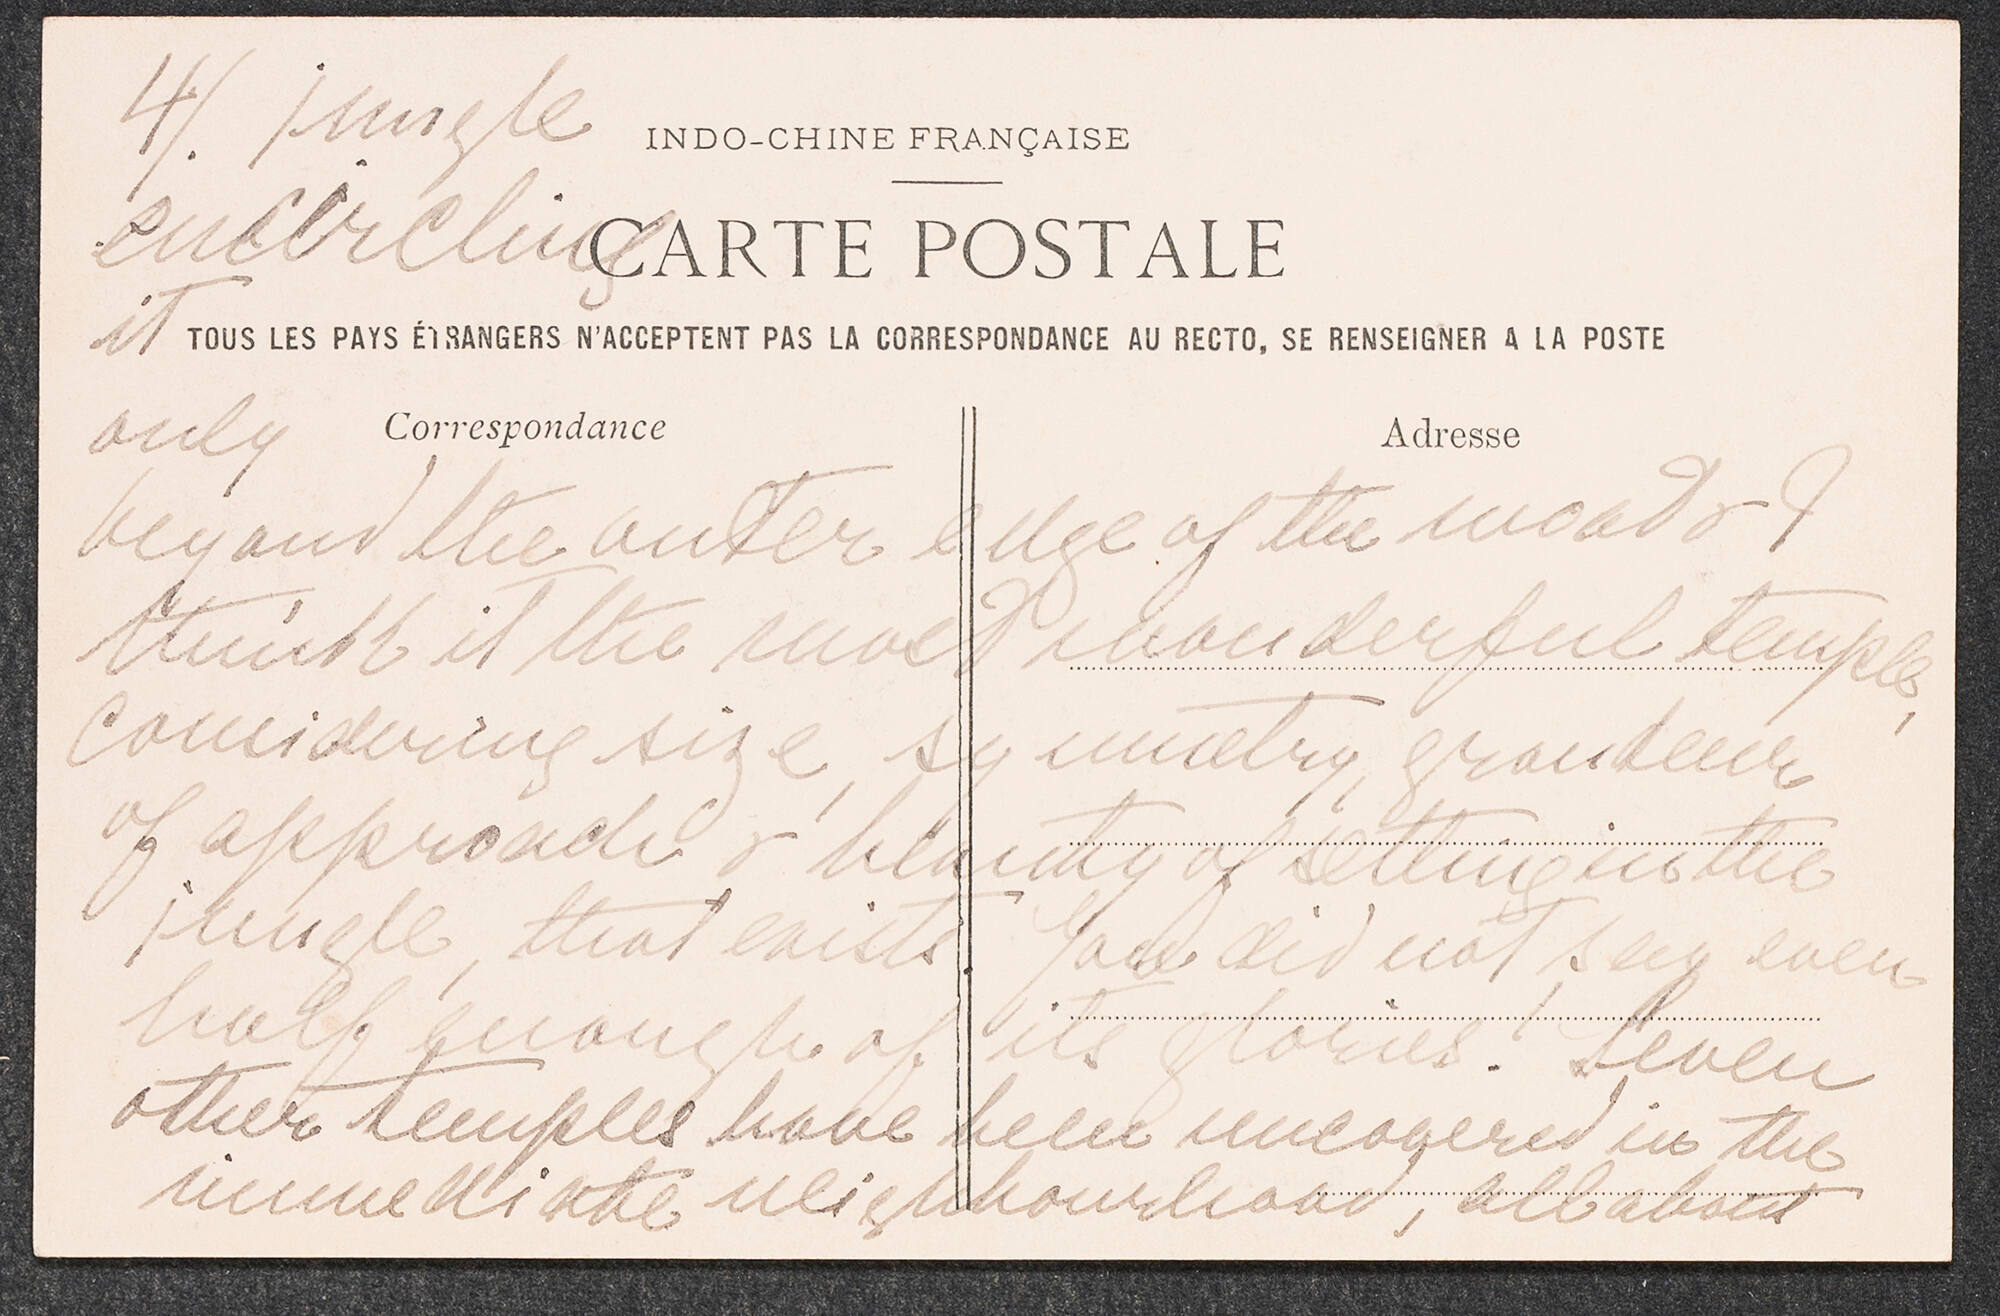 4/. jungle
INDO-CHINE FRANÇAISE
encircling
CARTE POSTALE
it
TOUS LES PAYS ÉTRANGERS N'ACCEPTENT PAS LA CORRESPONDANCE AU RECTO, SE RENSEIGNER A LA POSTE
only
Correspondance
Adresse
beyond the outer edge of the moat & I
think it the most wonderful temple,
considering size, symmetry, grandeur
of approach & beauty of setting in the
jungle, that exists. You did not say even
half enough of its glories! Seven
other temples have been uncovered in the
immediate neighbourhood, all about